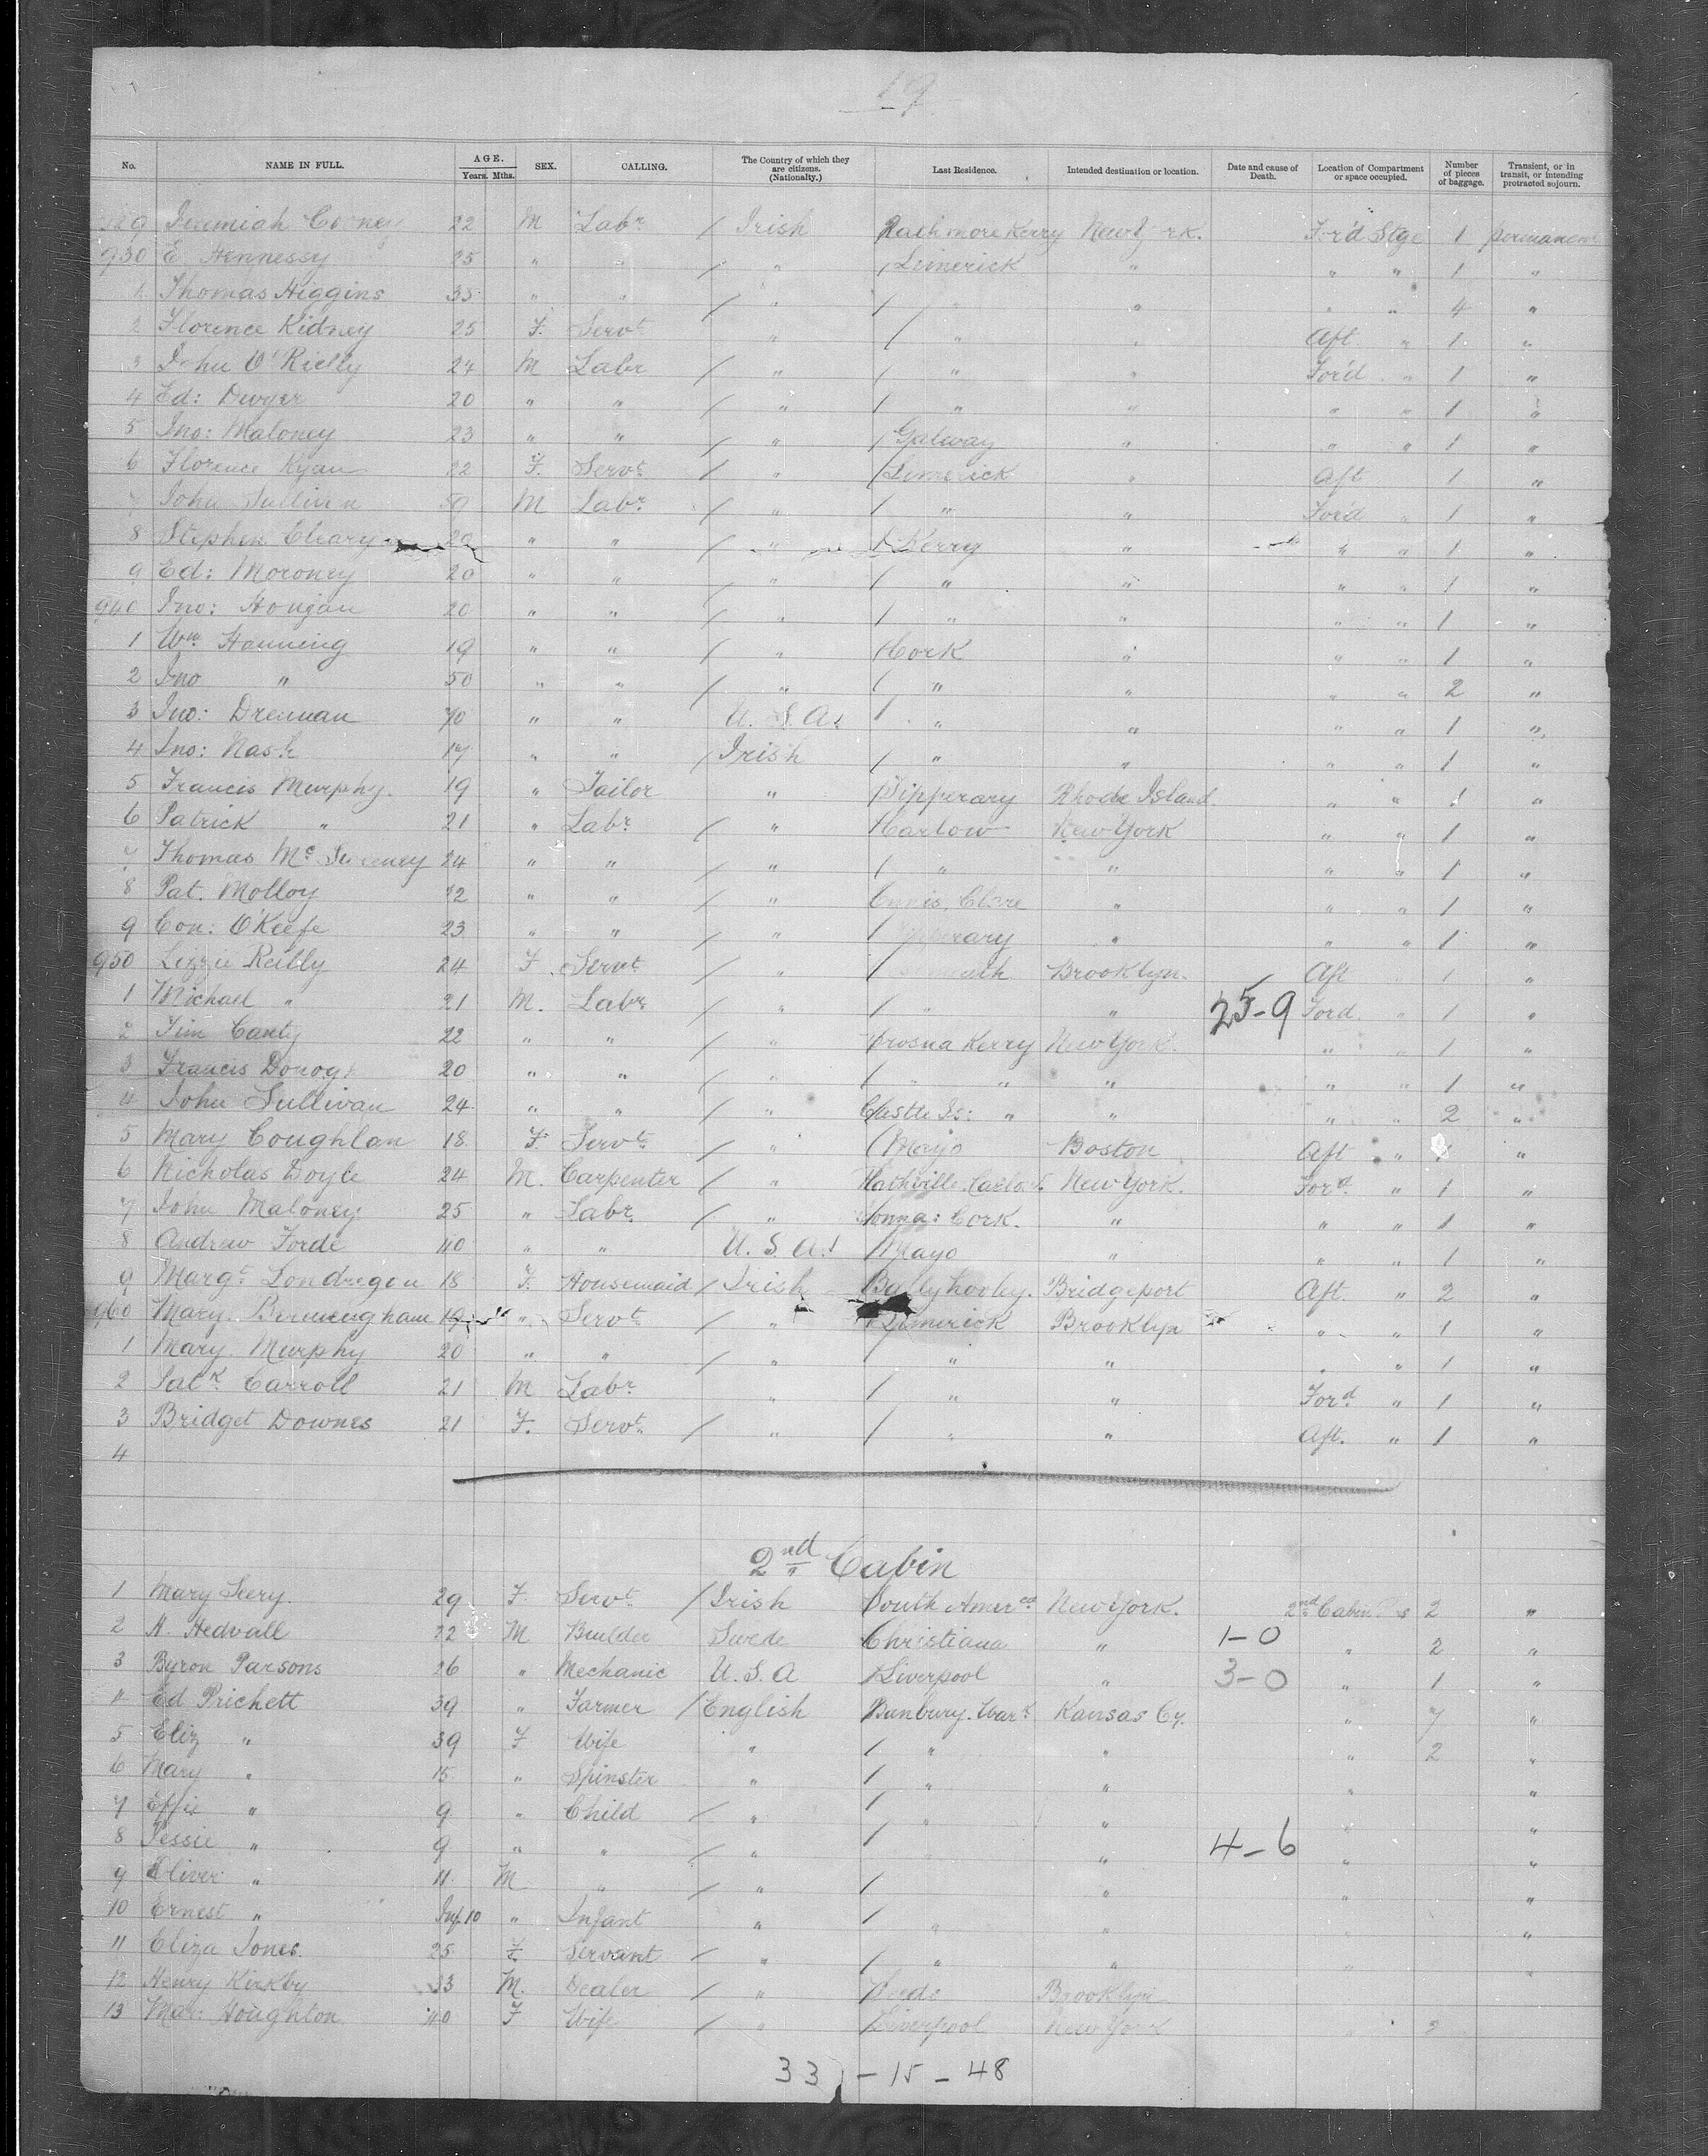 19
No. NAME IN FULL. AGE. Years. Mths. SEX. CALLING. The Country of which they are citizens. (Nationalty.) Last Residence. Intended destination or location. Date and cause of Death. Location of Compartment or space occupied. Number of pieces of baggage. Transient, or in transit, or intending protracted sojourn.
Jeremiah Cooney 22 M Labr / Irish Rathmore Kerry New York. For'd Stge 1 permanent
930 E Hennessy 25 " " / " / Limerick " " " 1 "
1 Thomas Higgins 35 " " / " / " " " " 4 "
2 Florence Kidney 25 F. Servt " / " " Aft " 1 "
3 John O'Rielly 24 M Labr / " / " " For'd " 1 "
4 Ed: Dwyer 20 " " / " / " " " " 1 "
5 Jno: Maloney 23 " " / " / Galway " " " 1 "
6 Florence Ryan 22 F. Servt / " / Limerick " Aft 1 "
7 John Sullivan 50 M Labr / " / " " For'd " 1 "
8 Stephen Cleary 20 " " / " / Kerry " " " 1 "
9 Ed: Moroney 20 " " / " / " " " " 1 "
940 Jno: Hougan 20 " " / " / " " " " 1 "
1 Wm Hanning 19 " " / " / Cork " " " 1 "
2 Jno " 50 " " / " / " " " " 2 "
3 Jno: Drennan 70 " " U. S. A. / " " " " 1 "
4 Jno: Nash 17 " " / Irish / " " " " 1 "
5 Francis Murphy. 19 " Tailor " Tipperary Rhode Island " " 1 "
6 Patrick " 21 " Labr / " Carlow New York " " 1 "
7 Thomas Mc Sweeney 24 " " / " / " " " " 1 "
8 Pat. Molloy 32 " " / " Ennis. Clare " " " 1 "
9 Con: O'Keefe 23 " " / " / Tipperary " " " 1 "
950 Lizzie Reilly 24 F. Servt / " / Brooklyn. Aft " 1 "
1 Michael " 21 M. Labr / " / " " 25-9 Ford. " 1 "
2 Tim Canty 22 " " / " Brosna Kerry New York. " " 1 "
3 Francis Donogh 20 " " / " / " " " " " 1 "
4 John Sullivan 24 " " / " Castle Is: " " " " 2 "
5 Mary Coughlan 18 F Servt / " / Mayo Boston Aft " 1 "
6 Nicholas Doyle 24 M. Carpenter / " New York. Ford " 1 "
7 John Maloney 25 " Labr / " Cork. " " " 1 "
8 Andrew Forde 40 " " U. S. A. / Mayo " " " 1 "
9 Margt Londregan 18 F. Housemaid / Irish Ballyhooly. Bridgeport Aft. " 2 "
960 Mary Bermingham 19 " Servt / " / Limerick Brooklyn " " 1 "
1 Mary Murphy 20 " " / " / " " " " 1 "
2 Patk Carroll 21 M Labr " / " " Ford " 1 "
3 Bridget Downes 21 F. Servt / " / " " Aft. " 1 "
4
2nd Cabin
1 Mary Leery. 29 F Servt / Irish South Amerca New York. 2nd Cabin 2 "
2 H. Hedvall 22 M Builder Swede Christiana " 1-0 " 2 "
3 Byron Parsons 26 " Mechanic U. S. A / Liverpool " 3-0 " 1 "
4 Ed Prichett 39 " Farmer / English Banbury. Wark Kansas Cy. " 7 "
5 Eliz " 39 F Wife " / " " " 2 "
6 Mary " 15 " Spinster " / " " " "
7 Effie " 9 " Child / " / " " " "
8 Jessie " 9 " " / " / " 4-6 " "
9 Oliver " 11 M " / " / " " "
10 Ernest " Inf. 10 " Infant " / " " "
11 Eliza Jones. 25 F Servant / " / " " " "
12 Henry Kirkby 33 M. Dealer / " Leeds Brooklyn
13 Mar: Houghton 40 F Wife / " / Liverpool New York " 3
33 - 15 - 48